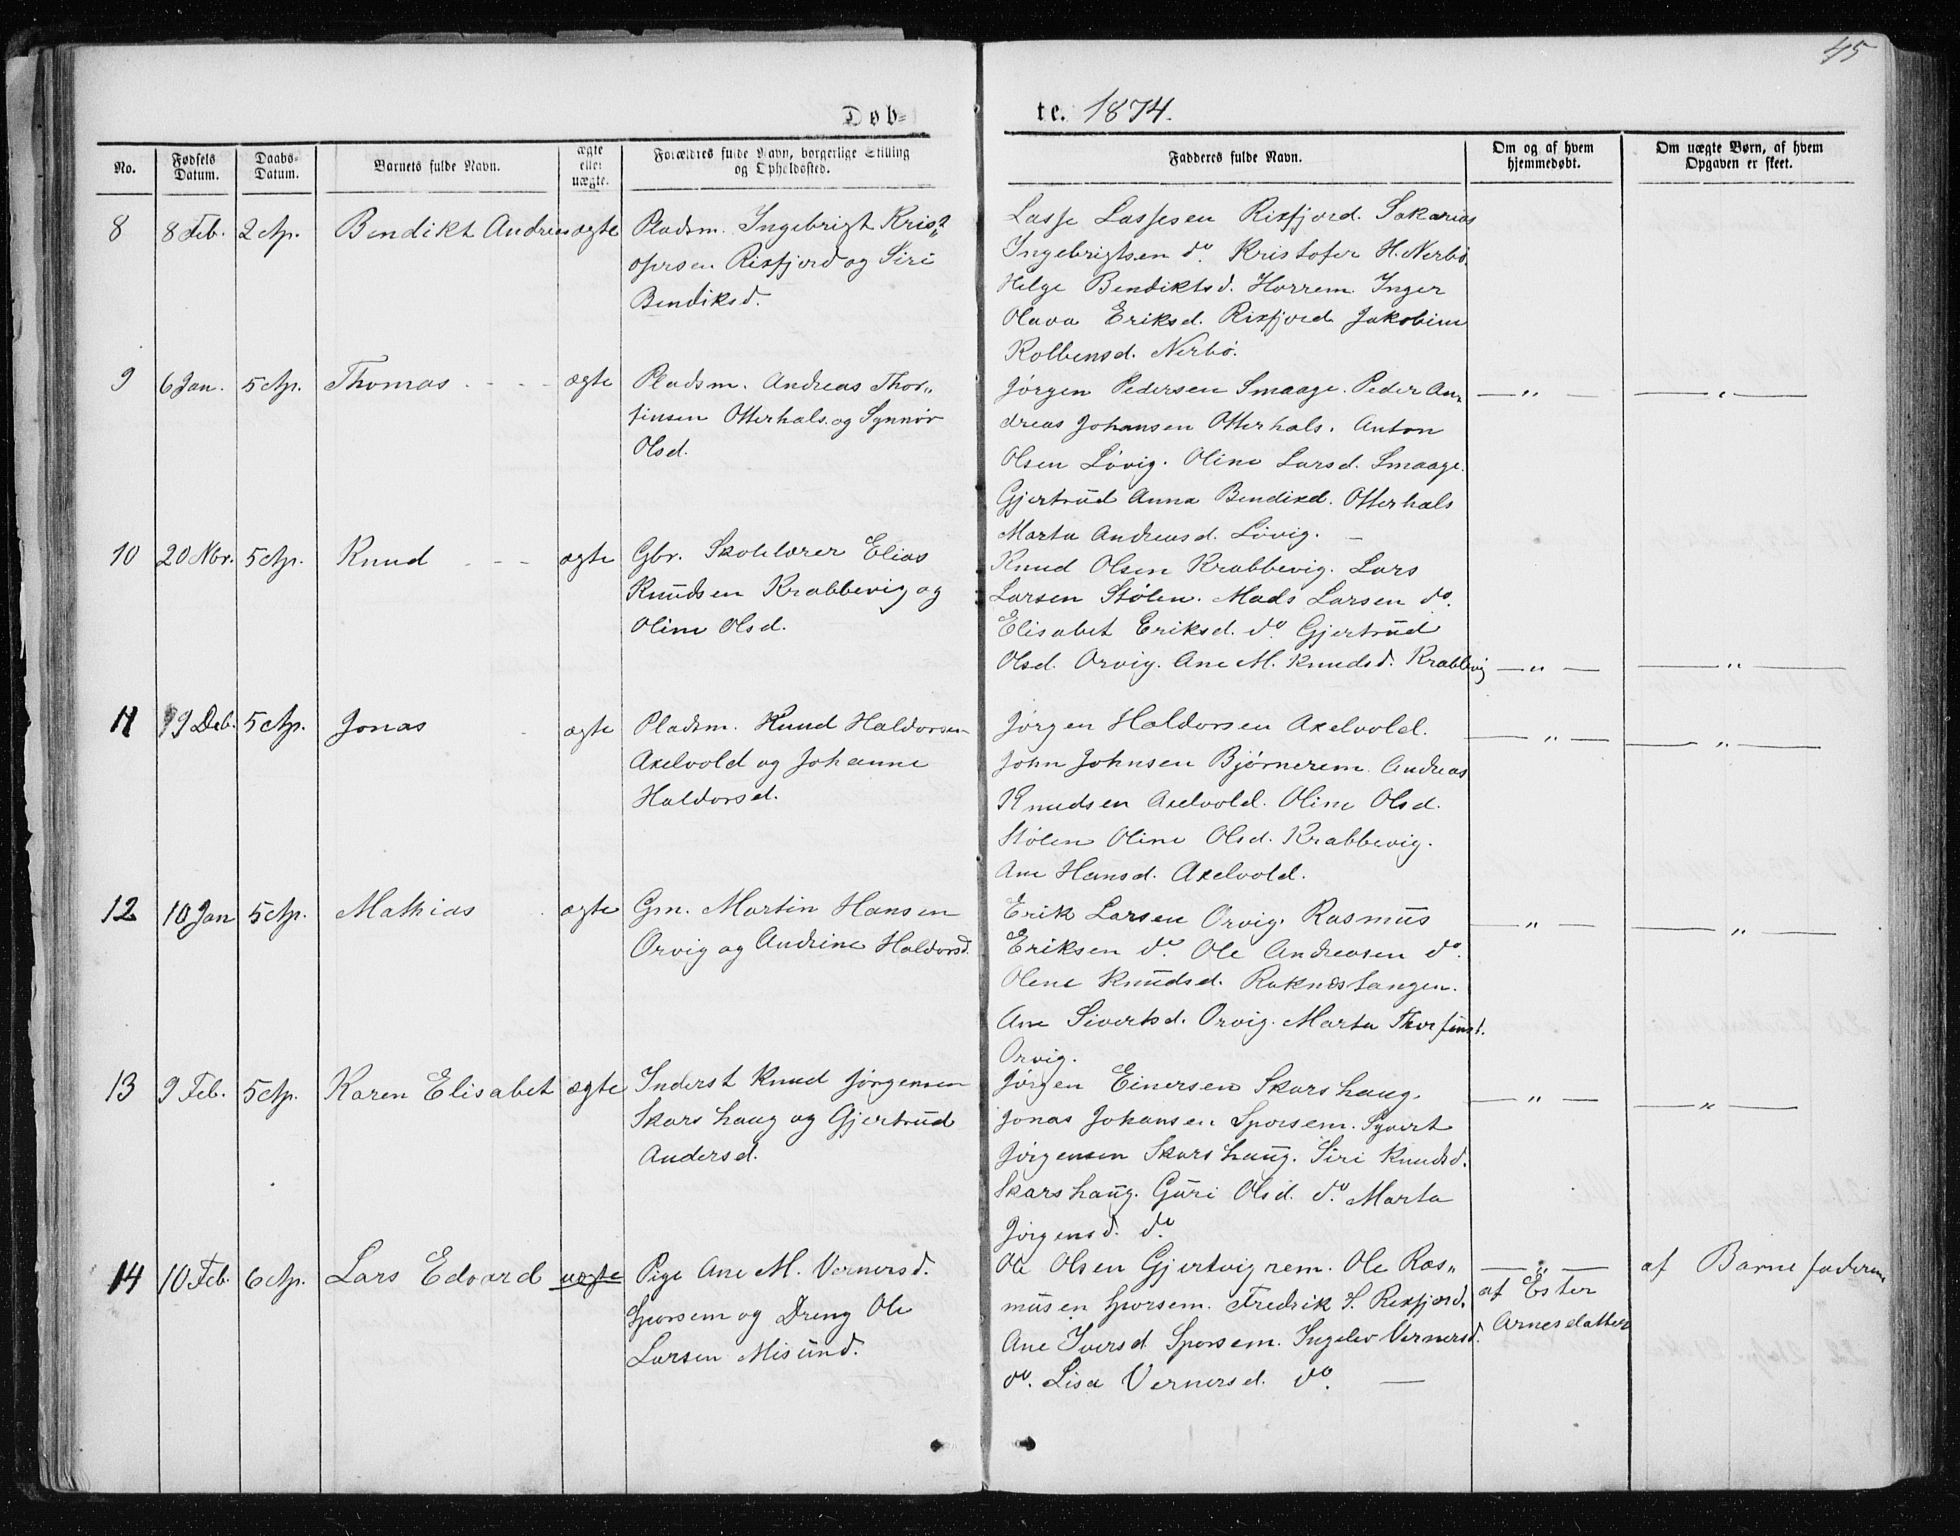 45
Døb= te. 1874.
No. Fødsels Datum. Daabs-Datum. Barnets fulde Navn. ægte eller uægte. Forældres fulde Navn, borgerlige Stilling og Opholdssted. Fadderes fulde Navn. Om og af hvem hjemmedøbt. Om uægte Børn, af hvem Opgaven er skeet.
8 8 Feb. 2 Ap. Bendikt Andreas ægte Pladsm. Ingebrigt Krist„
ofersen Rixfjord og Siri
Bendiksd.
Lasse Lassesen Rixfjord. Sakarias
Ingebrigtsen do. Kristofer H. Nerbø.
Helge Bendiktsd. Horrem. Inger
Olava Eriksd. Rixfjord. Jakobine
Kolbensd. Nerbø.
9 6 Jan. 5 Ap. Thomas - - - ægte Pladsm. Andreas Thor„
finsen Otterhals og Synnøv
Olsd.
Jørgen Pedersen Smaage. Peder An„ — „ — — „ —
dreas Johansen Otterhals. Anton
Olsen Løvig. Oline Larsd. Smaage.
Gjertrud Anna Bendixd. Otterhals
Marta Andreasd. Løvig. —
10 20 Nbr. 5 Ap. Knud - - - ægte Gbr. Skolelærer Elias
Knudsen Krabbevig og
Oline Olsd.
Knud Olsen Krabbevig. Lars
Larsen Stølen. Mads Larsen do.
Elisabet Eriksd. do. Gjertrud
Olsd. Orvig. Ane M. Knudsd. Krabbevig — „ — — „ —
11 19 Deb. 5 Ap. Jonas - ægte Pladsm. Knud Haldorsen
Axelvold og Johanne
Haldorsd.
Jørgen Haldorsen Axelvold. — „ — — „ —
John Johnsen Bjørnerem. Andreas
Knudsen Axelvold. Oline Olsd.
Stølen Oline Olsd. Krabbevig.
Ane Hansd. Axelvold.
12 10 Jan 5 Ap. Mathias - ægte Gm. Martin Hansen
Orvig og Andrine Haldorsd.
Erik Larsen Orvig. Rasmus — „ — — „ —
Eriksen do. Ole Andreasen do.
Olene Knudsd. Raknestangen.
Ane Sivertsd. Orvig. Marta Thorfinsd.
Orvig.
13 9 Feb. 5 Ap. Karen Elisabet ægte Inderst Knud Jørgensen
Skarshaug og Gjertrud
Andersd.
Jørgen Einersen Skarshaug. — „ — — „ —
Jonas Johansen Sporsem. Syvert
Jørgensen Skarshaug. Siri Knudsd.
Skarshaug. Guri Olsd. do. Marta
Jørgensd. do.
14 10 Feb. 6 Ap. Lars Edvard uægte Pige Ane M. Vernersd.
Sporsem og Dreng Ole
Larsen Misund.
Ole Olsen Gjertvigrem. Ole Ras„ — „ — af Barnefaderen
musen Sporsem. Fredrik S. Rixfjord. af Ester
Ane Iversd Sporsem. Ingelev Vernersd. Arnesdatter
do. Lisa Vernersd. do. —